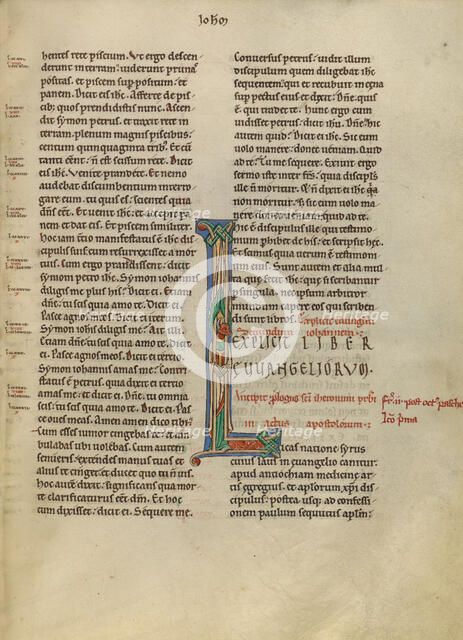 Ioh̄s
hentes rete piscium. Ut ergo descen
derunt in terram: uiderunt prunas
positas. et piscem suppositum: et
panem. Dicit eis ihc̄. Afferte de pis
cib; quos prendidistis nunc. Ascen
dit symon petrus. et traxit rete in
terram. plenum magnis piscibus:
centum quinquaginta trib;. Et cū
tanti eent: n̄ est scissum rete. Dicit
eis ihc̄. Venite prandete. Et nemo
audebat discumbentium interro
gare eum. tu quis es: scientes quia
dn̄s est. Et uenit ihc̄. et accipit pa
nem et dat eis. Et piscem similiter.
Hoc iam tercio manifestatus ē ihc̄ dis
cipulis suis cum resurrexisset a mor
tuis. Cum ergo prandissent: dicit
symoni petro ihc̄. Symon iohannis
diligis me plus his? Dicit ei. Etiam
dn̄e: tu scis quia amo te. Dicit ei.
Pasce agnos meos. Dicit ei iterum.
Symon iohis diligis me? Ait illi.
Etiam dn̄e: tu scis quia amo te. Dicit
ei. Pasce agnos meos. Dicit ei tercio.
Symon iohannis amas me? Contris
tatus ē petrus. quia dixit ei tercio
amas me. et dicit ei. Dn̄e. tu omnia
scis: tu scis quia amo te. Dicit ei. Pas
ce oues meas. Amen amen dico tibi:
Cum esses iunior cingebas te. et am
bulabas ubi uolebas. Cum autem
senueris: extendes manus tuas et
alius te cinget: et ducet quo tu n̄ uis.
Hoc autē dixit: significans qua mor
te clarificaturus eēt dm̄. Et hoc
cum dixisset: dicit ei. Sequere me.
Conuersus petrus: uidit illum
discipulum quem diligebat ihc̄
sequentem. qui et recubuit in cena
sup pectus eius et dixit. Dn̄e. quis ē
qui tradet te? Hunc ergo cum
uidisset petrus: dicit ihu. Dn̄e. hic
autem quid? Dicit ei ihc̄. Sic eum
uolo manere: donec ueniam. Quid
ad te? Tu me sequere. Exiuit ergo
sermo iste inter frs̄: quia discipls̄
ille n̄ moritur. Et n̄ dixit ei ihc̄ qa
non moritur: sed sic eum uolo ma
nere donec ueniam: quid ad te.
Hic ē discipulus ille qui testimo
nium phibet de his: et scripsit hec.
Et scimus quia uerum ē testimoni
um eius. Sunt autem et alia mul
ta que fecit ihc̄: que si scribantur
p singula: nec ipsum arbitror
mundum capere eos qui scriben
di sunt libros. Explicit euuḡlm
Secundum iohannem.
EXPLICIT LIBER
EUUANGELIORVM.
Incipit plogus sc̄i iheronimi prb̄i
in actus apostolorum.
Lucas natione syrus
cuius laus in euangelio canitur.
apud antiochiam medicine ar
tis egregius. et aplorum xp̄i dis
cipulus: postea usq; ad confessi
onem paulum sequutus aplm̄: